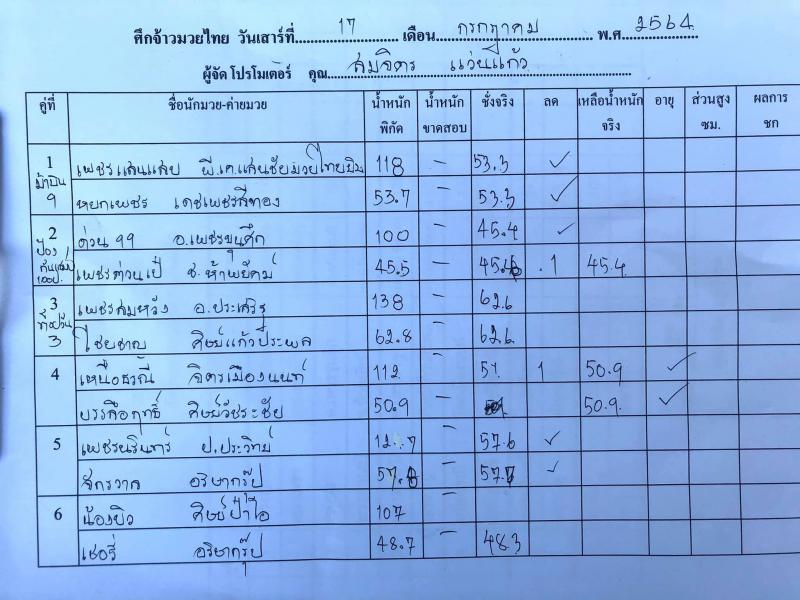 ศึกจ้าวมวยไทย วันเสาร์ที่ 17 เดือน กรกฎาคม พ.ศ. 2564
ผู้จัด โปรโมเตอร์ คุณ สมจิตร แว่นแก้ว
คู่ที่ ชื่อนักมวย-ค่ายมวย น้ำหนักพิกัด น้ำหนักขาดสอบ ชั่งจริง ลด เหลือน้ำหนักจริง อายุ ส่วนสูง ซม. ผลการชก
1 เพชรแสนแสบ พี.เค.แสนชัยมวยไทยยิม 118 – 53.3 ✓
9 หยกเพชร เดชเพชรสีทอง 53.7 – 53.3 ✓
2 ด่วน 99 อ.เพชรขุนศึก 100 – 45.4 ✓
ป้อง เพชรด่วนเป้ ช.ห้าพยัคฆ์ 45.5 – .1 45.4
3 เพชรสมหวัง อ.ประเสริฐ 138 – 62.6
3 ไชยชาญ ศิษย์แก้วประพล 62.8 – 62.6
4 เหนือธรณี จิตรเมืองนนท์ 112 – 51 1 50.9 ✓
บรรลือฤทธิ์ ศิษย์วัชระชัย 50.9 – 50.9 ✓
5 เพชรนรินทร์ ป.ประวิทย์ – 57.6 ✓
จักรวาล อริษากรุ๊ป – ✓
6 น้องบิว ศิษย์ป๋าโอ 107 –
เชอรี่ อริษากรุ๊ป 48.7 – 48.3